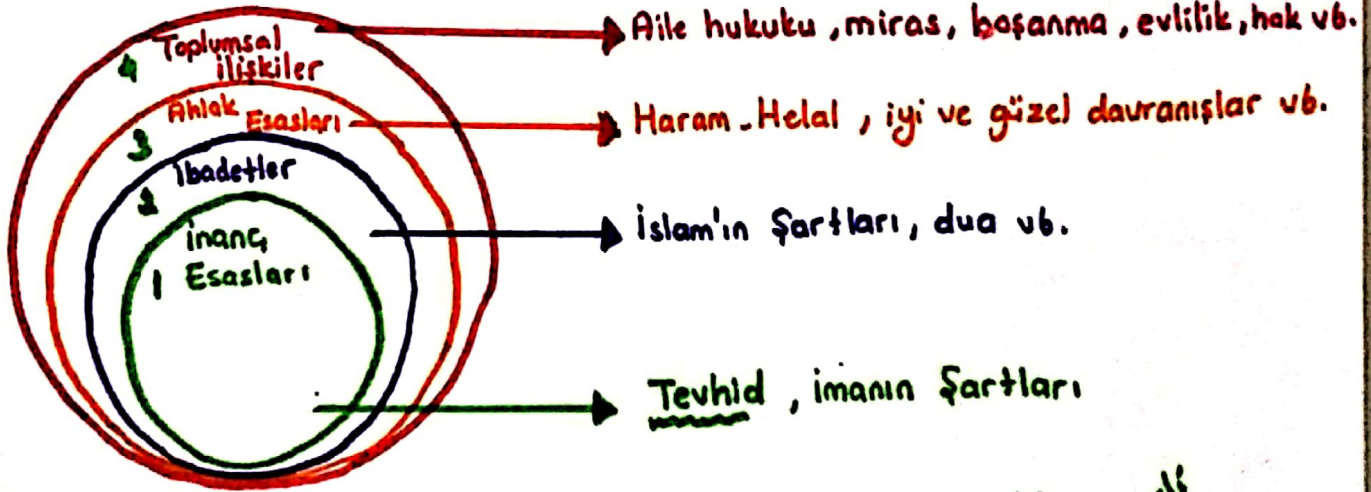 4 Toplumsal ilişkiler
Aile hukuku, miras, boşanma, evlilik, hak vb.
3 Ahlak Esasları
Haram - Helal, iyi ve güzel davranışlar vb.
2 İbadetler
İslam'ın Şartları, dua vb.
1 İnanç Esasları
Tevhid, imanın Şartları